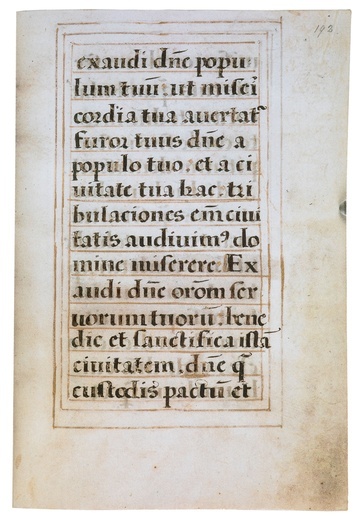 193
exaudi dñe popu
lum tuũ: ut miseĩ
cordia tua auertat᷑
furor tuus dñe a
populo tuo. et a ci
uitate tua hac. tri
bulaciones em̃ ciui
tatis audiuimꝰ do
mine miserere. Ex
audi dñe orõm ser
uorum tuorũ. bene
dic et sanctifica istã
ciuitatem. dñe q̃
custodis pactũ et